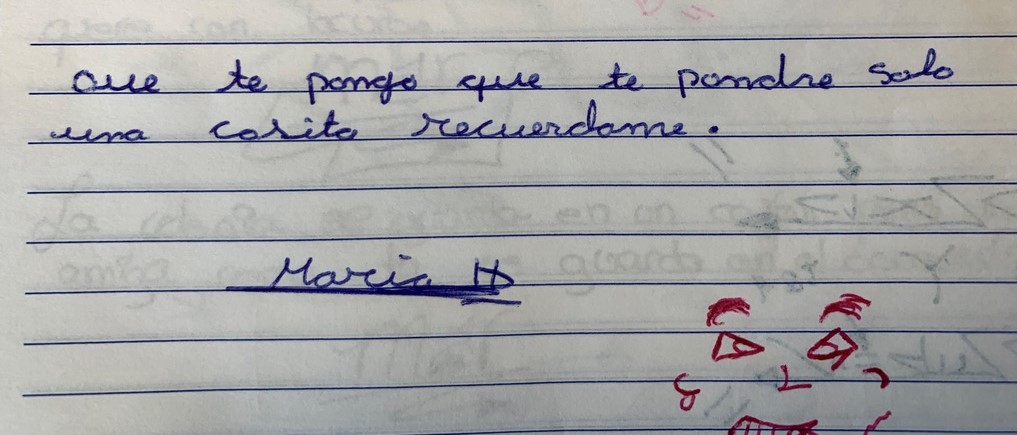 que te pongo que te pondre solo
una cosita recuerdame.
Maria H